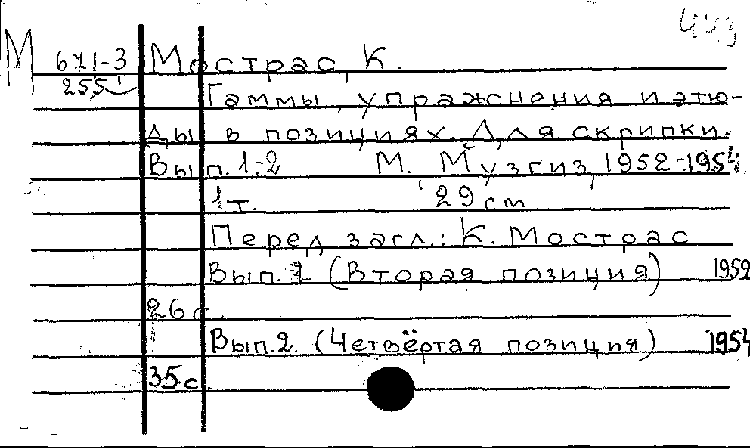 М 671-3 Мострас, К.
255
Гаммы, упражнения и этю-
ды в позициях. Для скрипки.
Вып. 1-2 М. Музгиз, 1952-1954
1 т. 29 cm
Перед загл.: К. Мострас
Вып. 1 (Вторая позиция) 1952
26 с.
Вып. 2. (Четвёртая позиция) 1954
35 с